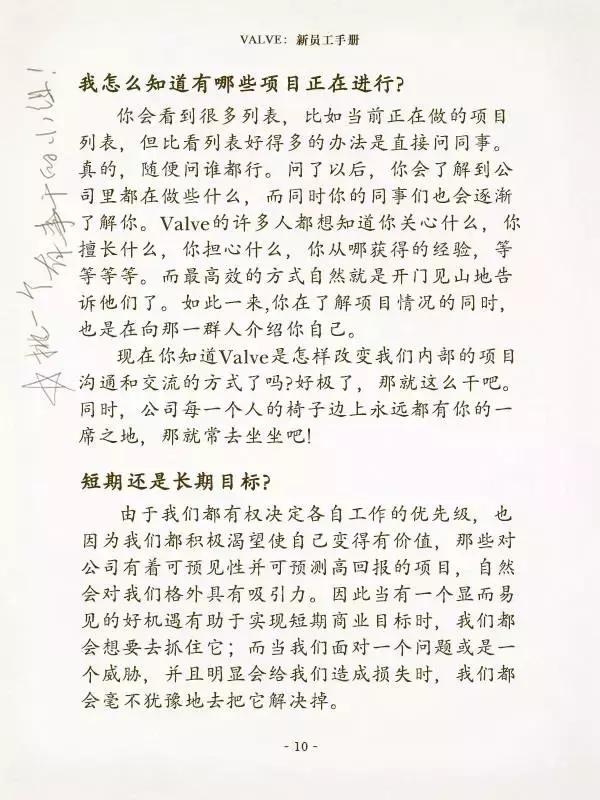 VALVE：新员工手册
挑一个有事干的小
我怎么知道有哪些项目正在进行?
你会看到很多列表，比如当前正在做的项目
列表，但比看列表好得多的办法是直接问同事。
真的，随便问谁都行。问了以后，你会了解到公
司里都在做些什么，而同时你的同事们也会逐渐
了解你。Valve的许多人都想知道你关心什么，你
擅长什么，你担心什么，你从哪获得的经验，等
等等等。而最高效的方式自然就是开门见山地告
诉他们了。如此一来,你在了解项目情况的同时，
也是在向那一群人介绍你自己。
现在你知道Valve是怎样改变我们内部的项目
沟通和交流的方式了吗?好极了，那就这么干吧。
同时，公司每一个人的椅子边上永远都有你的一
席之地，那就常去坐坐吧!
短期还是长期目标?
由于我们都有权决定各自工作的优先级，也
因为我们都积极渴望使自己变得有价值，那些对
公司有着可预见性并可预测高回报的项目，自然
会对我们格外具有吸引力。因此当有一个显而易
见的好机遇有助于实现短期商业目标时，我们都
会想要去抓住它；而当我们面对一个问题或是一
个威胁，并且明显会给我们造成损失时，我们都
会毫不犹豫地去把它解决掉。
- 10 -